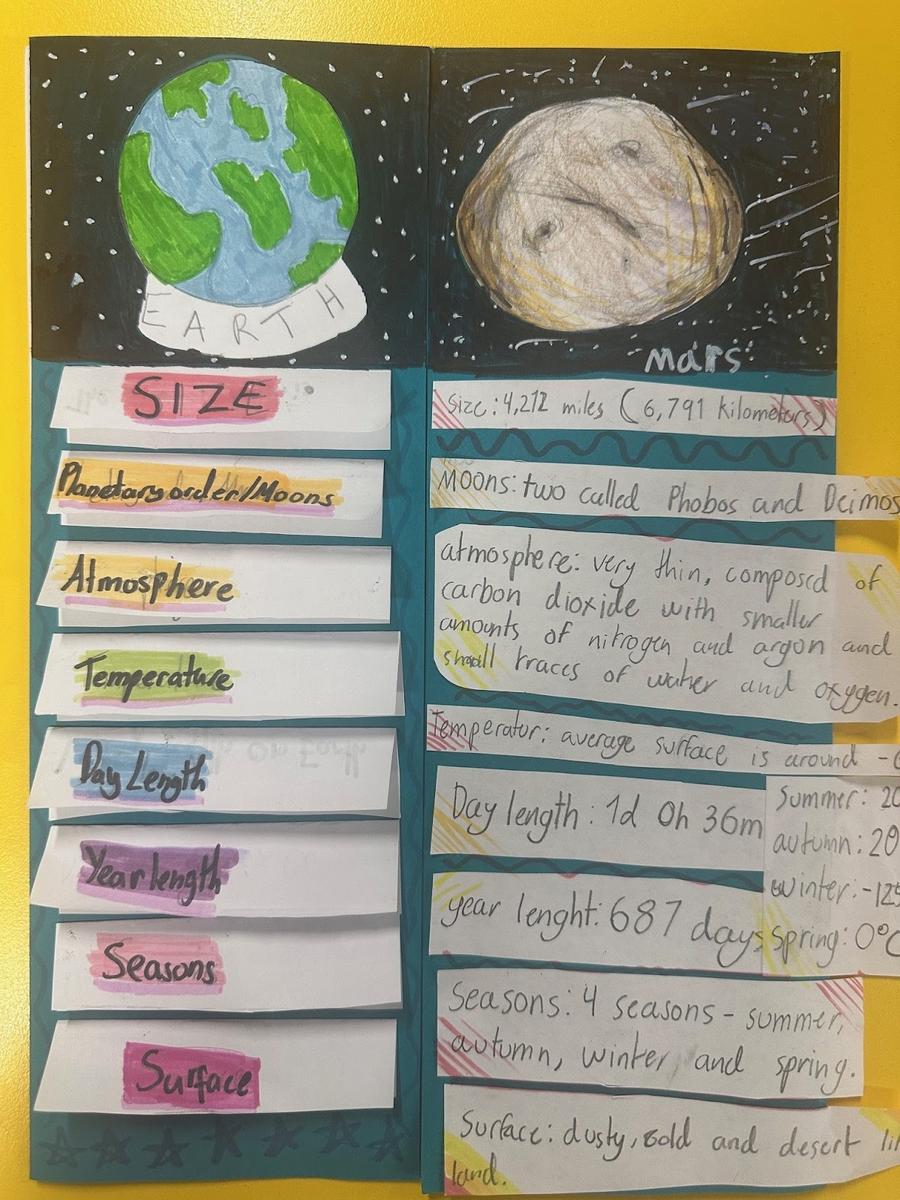 EARTH
SIZE
Planetary order/Moons
Atmosphere
Temperature
Day Length
On Earth
Year length
Seasons
Surface
mars
Size: 4,212 miles (6,791 kilometers)
Moons: two called Phobos and Deimos
atmosphere: very thin, composed of
carbon dioxide with smaller
amounts of nitrogen and argon and
small traces of water and oxygen.
Temperatur: average surface is around -6
Day length: 1d 0h 36m
Summer: 20
autumn: 20
winter: -125
spring: 0°C
year lenght: 687 days
Seasons: 4 seasons - summer,
autumn, winter and spring.
Surface: dusty, cold and desert li
land.